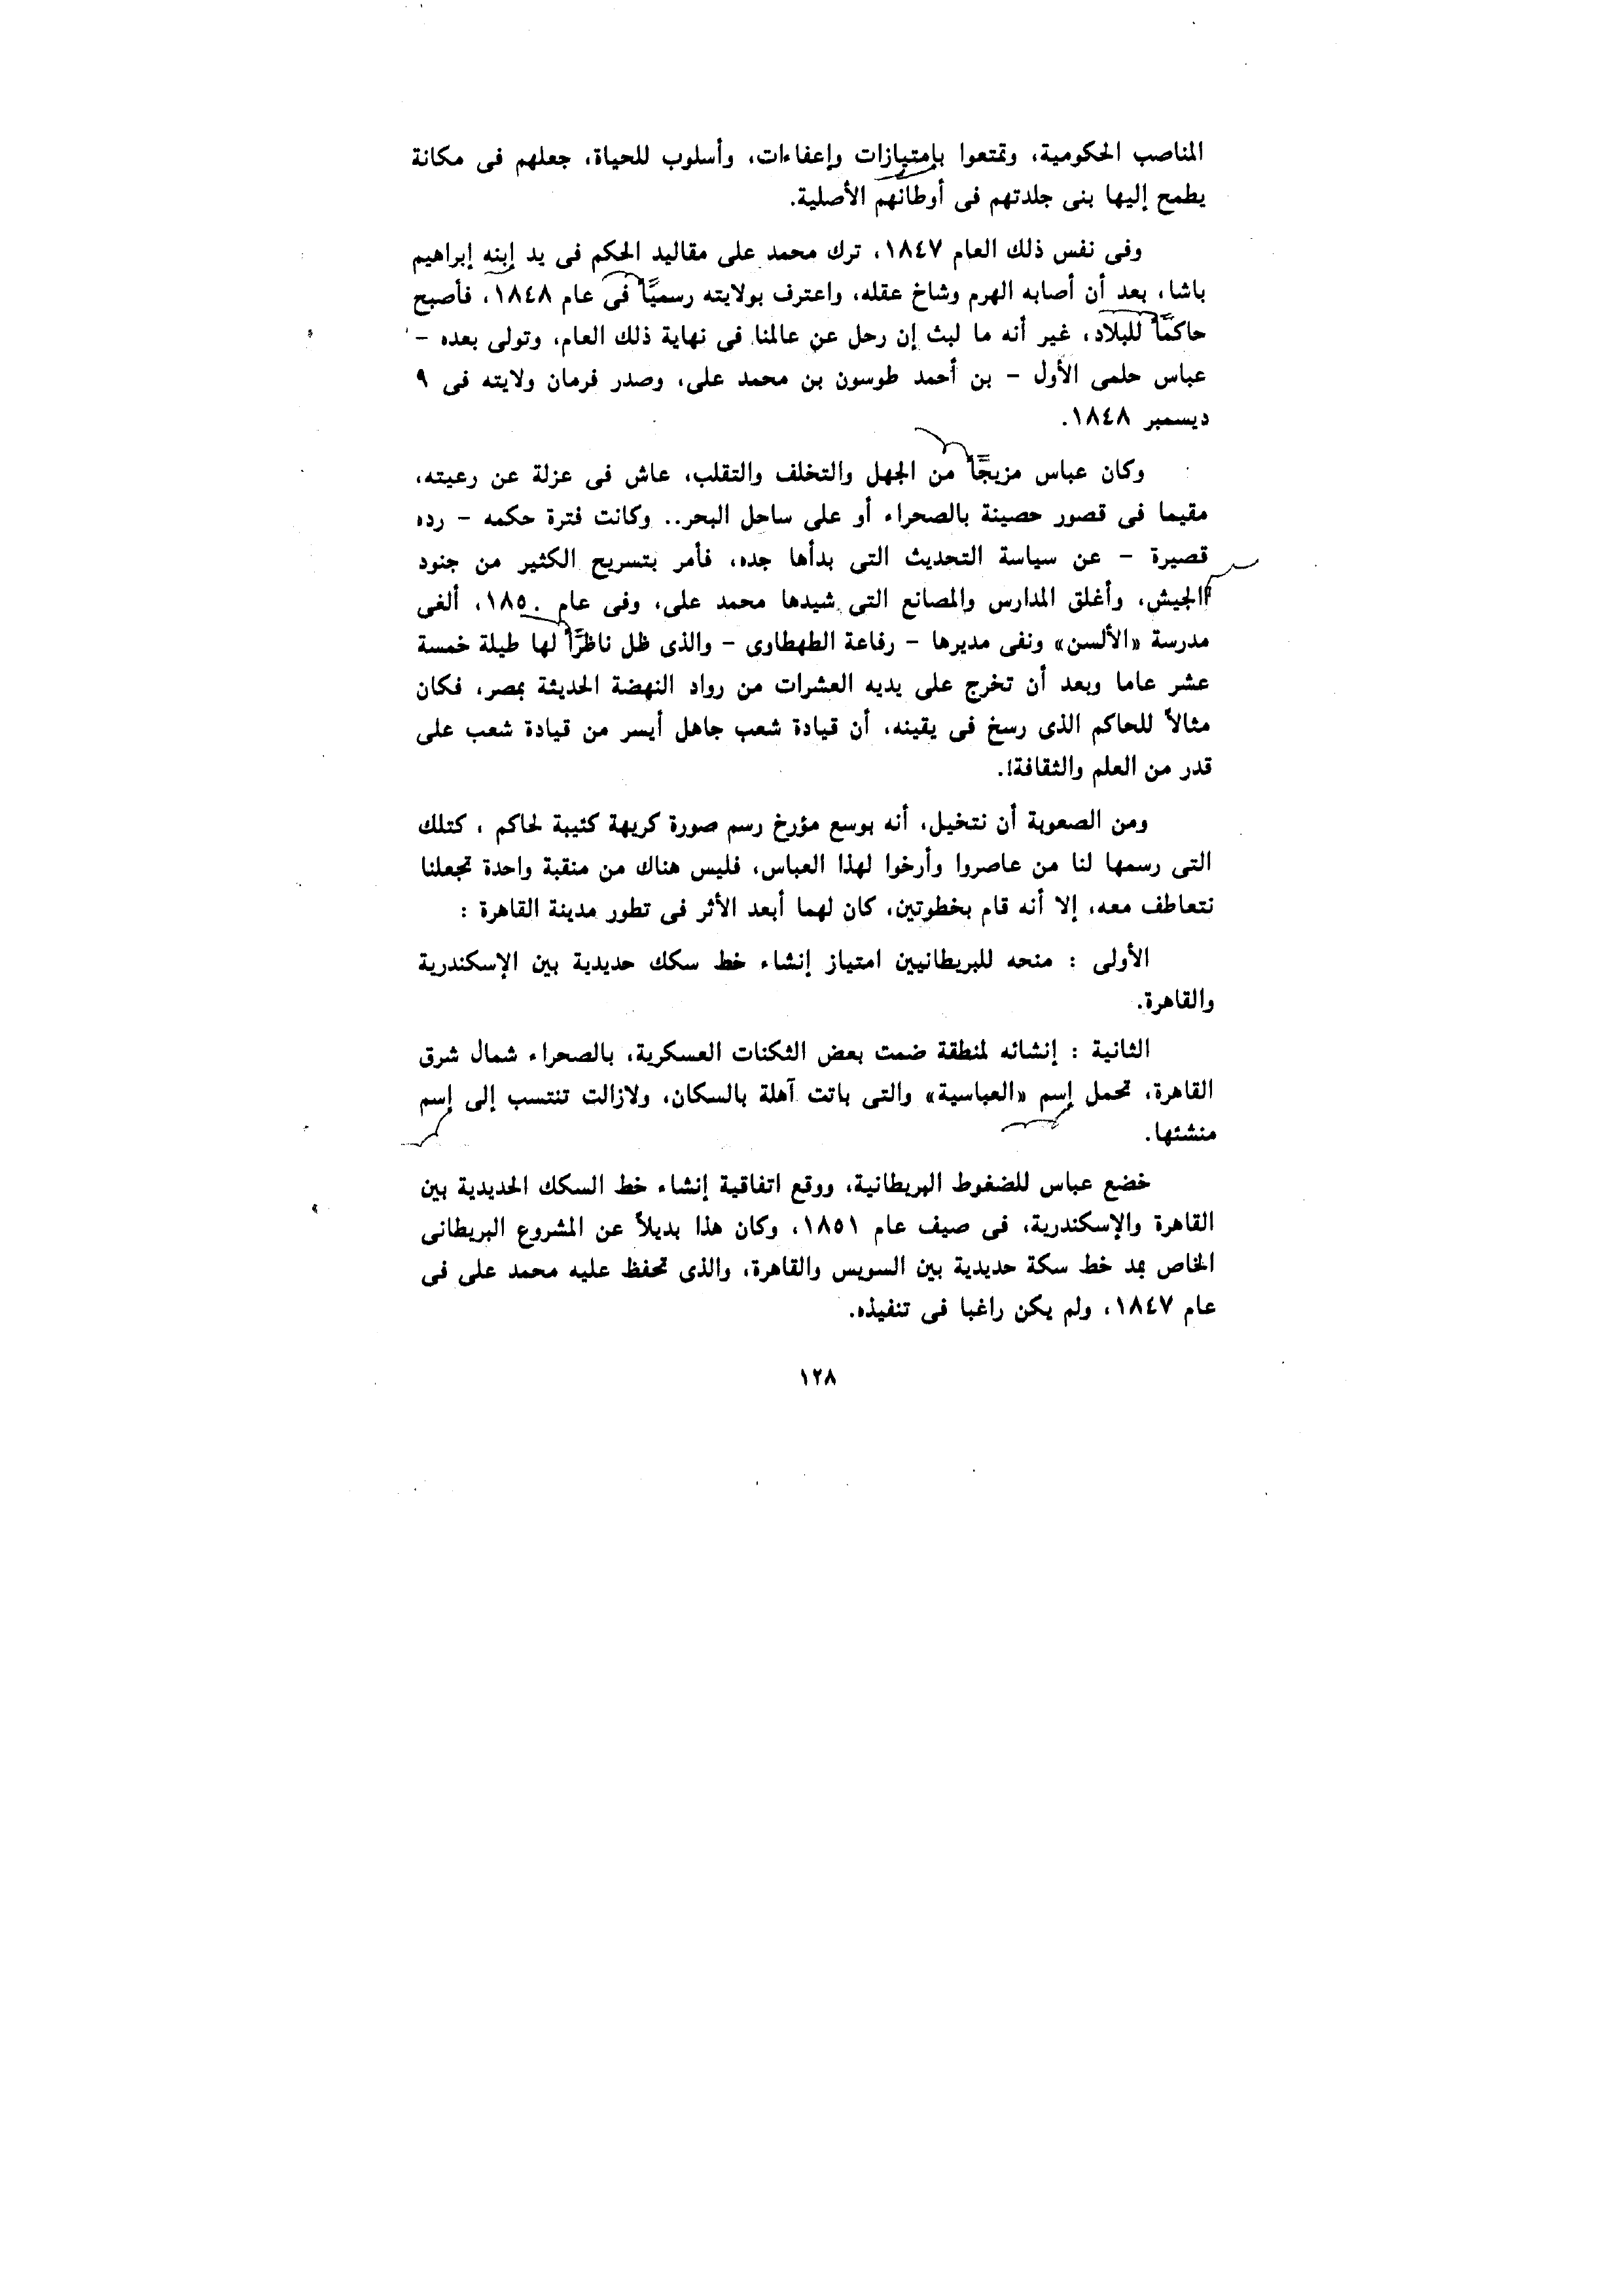 المناصب الحكومية، وتمتعوا بإمتيازات وإعفاءات، وأسلوب للحياة، جعلهم فى مكانة
يطمح إليها بنى جلدتهم فى أوطانهم الأصلية.
وفى نفس ذلك العام ١٨٤٧، ترك محمد على مقاليد الحكم فى يد إبنه إبراهيم
باشا، بعد أن أصابه الهرم وشاخ عقله، واعترف بولايته رسميًا فى عام ١٨٤٨، فأصبح
حاكمًا للبلاد، غير أنه ما لبث إن رحل عن عالمنا فى نهاية ذلك العام، وتولى بعده –
عباس حلمى الأول – بن أحمد طوسون بن محمد على، وصدر فرمان ولايته فى ٩
ديسمبر ١٨٤٨.
وكان عباس مزيجًا من الجهل والتخلف والتقلب، عاش فى عزلة عن رعيته،
مقيما فى قصور حصينة بالصحراء أو على ساحل البحر.. وكانت فترة حكمه – رده
قصيرة – عن سياسة التحديث التى بدأها جده، فأمر بتسريح الكثير من جنود
الجيش، وأغلق المدارس والمصانع التى شيدها محمد على، وفى عام ١٨٥٠، ألغى
مدرسة «الألسن» ونفى مديرها – رفاعة الطهطاوى – والذى ظل ناظرًا لها طيلة خمسة
عشر عاما وبعد أن تخرج على يديه العشرات من رواد النهضة الحديثة بمصر، فكان
مثالاً للحاكم الذى رسخ فى يقينه، أن قيادة شعب جاهل أيسر من قيادة شعب على
قدر من العلم والثقافة!.
ومن الصعوبة أن نتخيل، أنه بوسع مؤرخ رسم صورة كريهة كئيبة لحاكم ، كتلك
التى رسمها لنا من عاصروا وأرخوا لهذا العباس، فليس هناك من منقبة واحدة تجعلنا
نتعاطف معه، إلا أنه قام بخطوتين، كان لهما أبعد الأثر فى تطور مدينة القاهرة :
الأولى : منحه للبريطانيين امتياز إنشاء خط سكك حديدية بين الإسكندرية
والقاهرة.
الثانية : إنشائه لمنطقة ضمت بعض الثكنات العسكرية، بالصحراء شمال شرق
القاهرة، تحمل إسم «العباسية» والتى باتت آهلة بالسكان، ولازالت تنتسب إلى إسم
منشئها.
خضع عباس للضغوط البريطانية، ووقع اتفاقية إنشاء خط السكك الحديدية بين
القاهرة والإسكندرية، فى صيف عام ١٨٥١، وكان هذا بديلاً عن المشروع البريطانى
الخاص بمد خط سكة حديدية بين السويس والقاهرة، والذى تحفظ عليه محمد على فى
عام ١٨٤٧، ولم يكن راغبا فى تنفيذه.
١٢٨